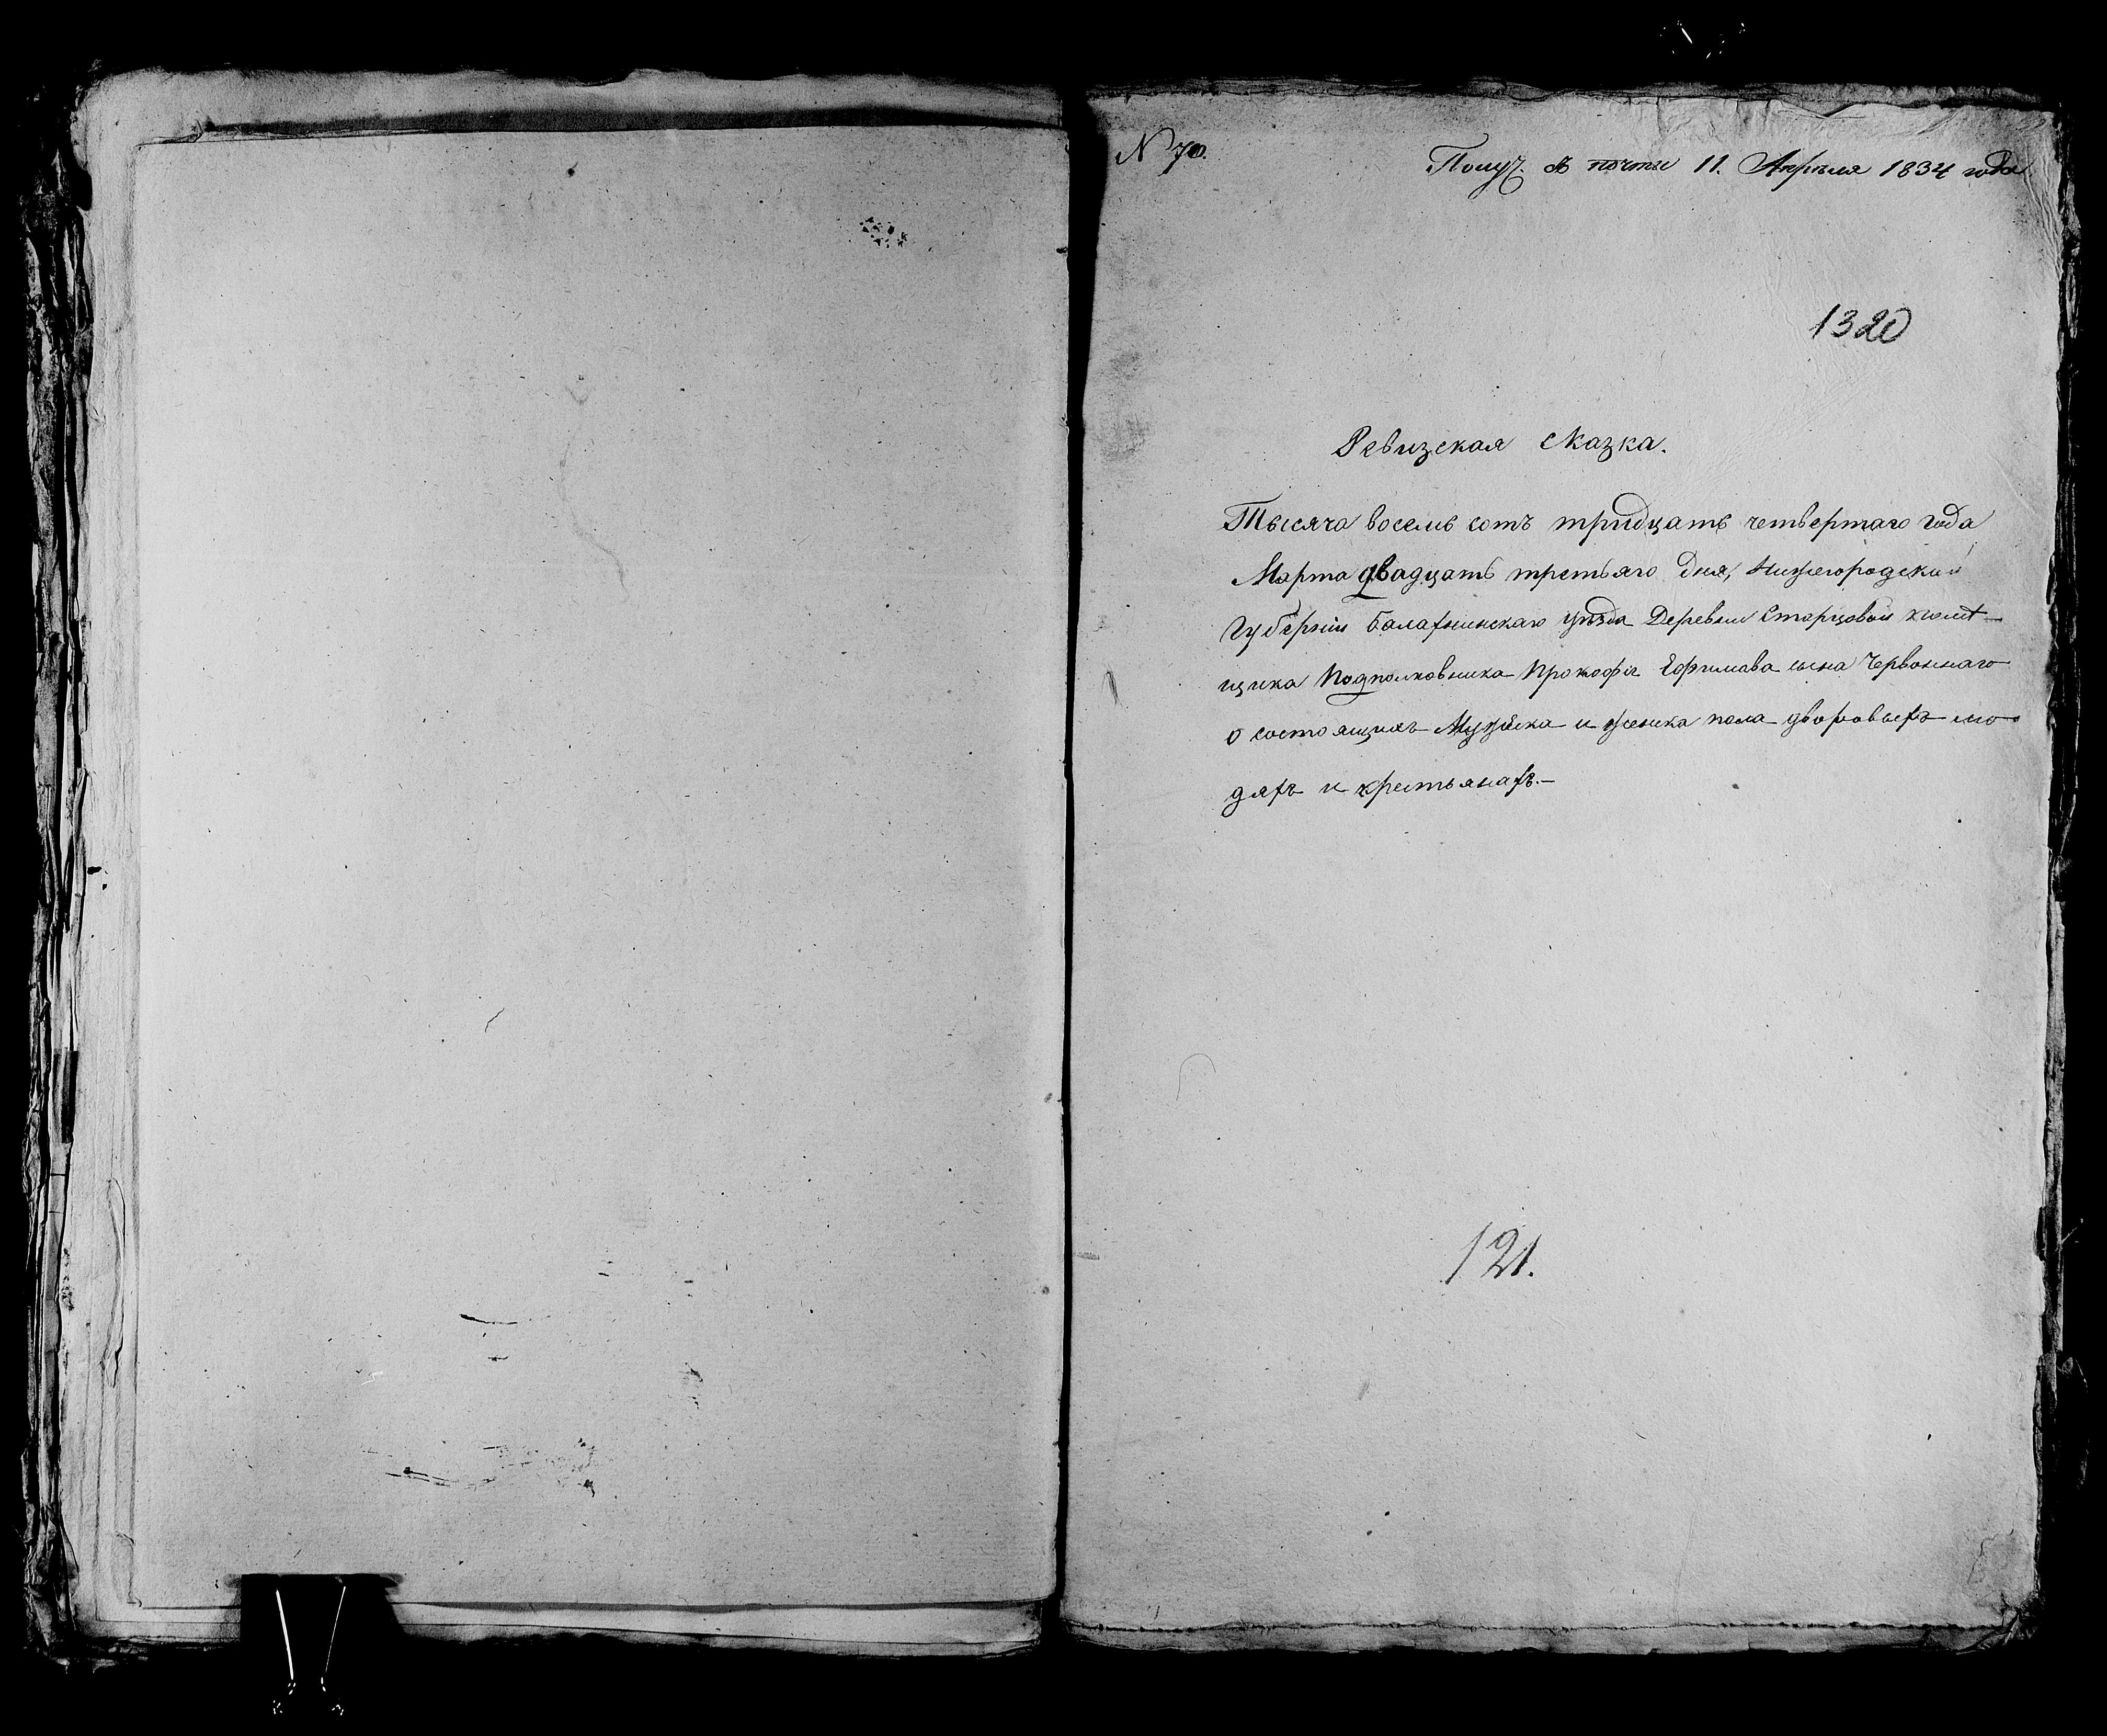 N 70.
Получ. съ почты 11. Апрѣля 1834 года
1320
Ревизская сказка.
Тысяча восемь сотъ тридцать четвертаго года
Марта двадцать третьяго дня, Нижегородской
Губерніи Балахнинскаго уѣзда Деревни Старцовой помѣ-
щика Подполковника Прокофья Ефимова сына Червоннаго
о состоящихъ Мужеска и женска пола дворовыхъ лю-
дяхъ и крестьянахъ.-
121.